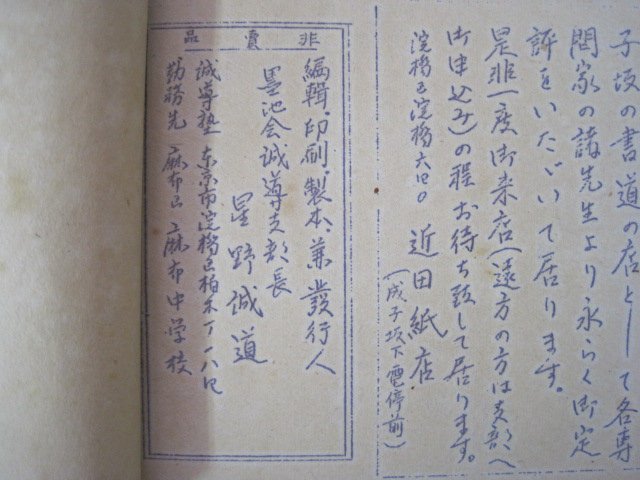 子坂の書道の店として各専
門家の諸先生より永らく御定
評をいたゞいて居ります。
是非一度御来店(遠方の方は支部へ
御申込み)の程お待ち致して居ります。
淀橋区淀橋六四〇 近田紙店
(成子坂下電停前)
非賣品
編輯、印刷、製本、兼發行人
墨池会誠導支部長
星野誠道
誠導塾 東京市淀橋区柏木一ノ一八四
勤務先 麻布区麻布中学校